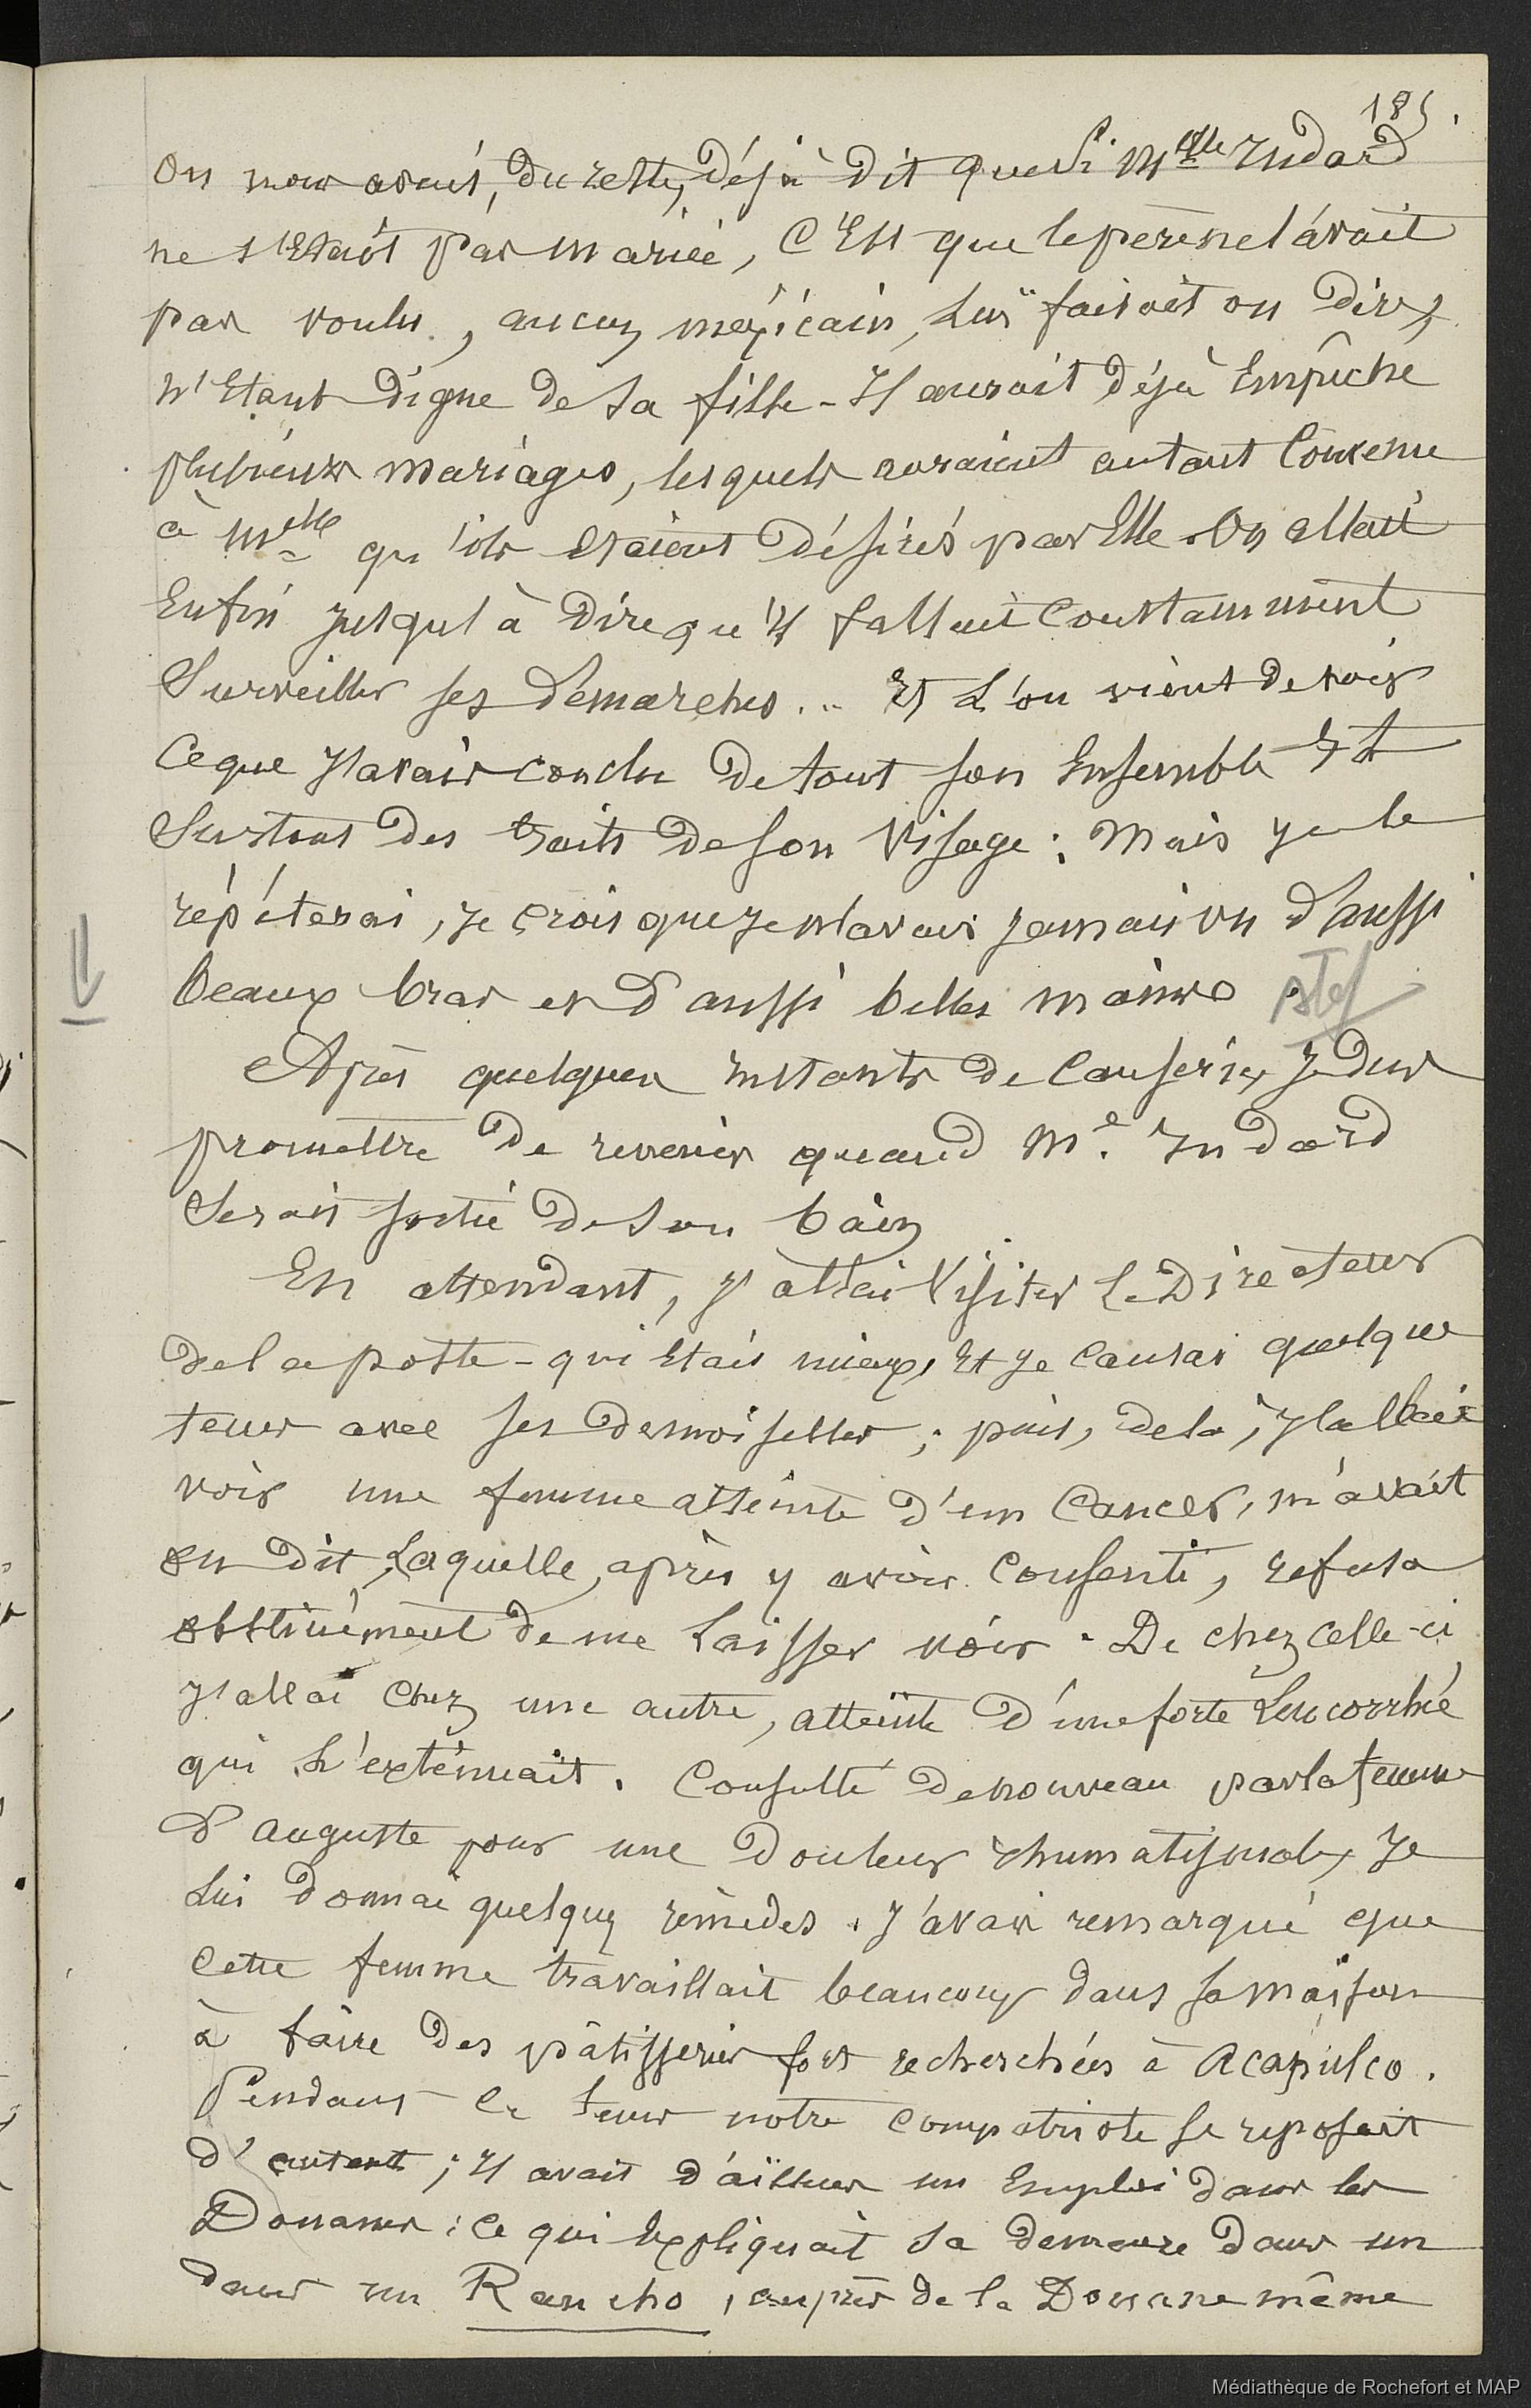 185.
On nous avait, du reste, déjà dit que si Melle Indard
ne s'était pas mariée, c'est que le père ne l'avait
pas voulu, aucun méxicain, lui faisait on dire,
n'étant digne de sa fille - Il aurait déjà empêché
plusieurs mariages, lesquels auraient autant convenu
à Melle qu'ils étaient désirés par Elle. On allait
Enfin jusqu'à dire qu'il fallait constamment
surveiller ses démarches... Et l'on vient de voir
ce que j'avais conclu de tout son Ensemble Et
surtout des traits de son visage : Mais je le
répéterai, je crois que je n'avais jamais vu d'aussi
beaux bras et d'aussi belles mains.
Après quelques instants de causerie, je dus
promettre de revenir quand Me. Indard
serait sortie de son bain
En attendant, j'allai visiter Le Directeur
de la poste - qui était mieux, Et je causai quelque
tems avec ses demoiselles ; puis, de là, j'allai
voir une femme atteinte d'un Cancer, m'avait
on dit, Laquelle, après y avoir consenti, refusa
obstinément de me Laisser voir. De chez celle-ci
j'allai chez une autre, atteinte d'une forte Leucorrhée
qui L'exténuait. Consulté de nouveau par la femme
d'auguste pour une douleur rhumatismale, Je
Lui donnai quelques rémèdes. J'avais remarqué que
cette femme travaillait beaucoup dans sa maison
à faire des pâtisseries fort recherchées à Acapulco.
Pendant ce tems notre compatriote se reposait
d'autant ; Il avait d'ailleurs un Emploi dans les
Douanes : ce qui Expliquait sa demeure dans un
dans un Rancho, auprès de la Douane même
Médiathèque de Rochefort et MAP